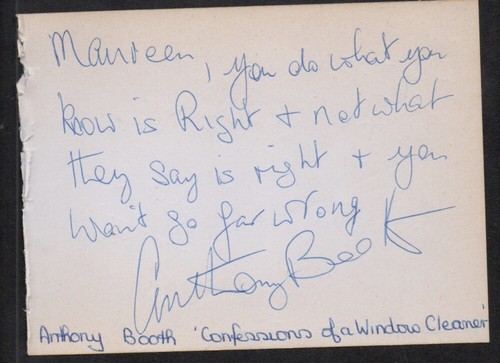 Maureen, you do what you
know is Right + not what
they say is right + you
won't go far wrong
Anthony Booth
Anthony Booth 'Confessions of a Window Cleaner'